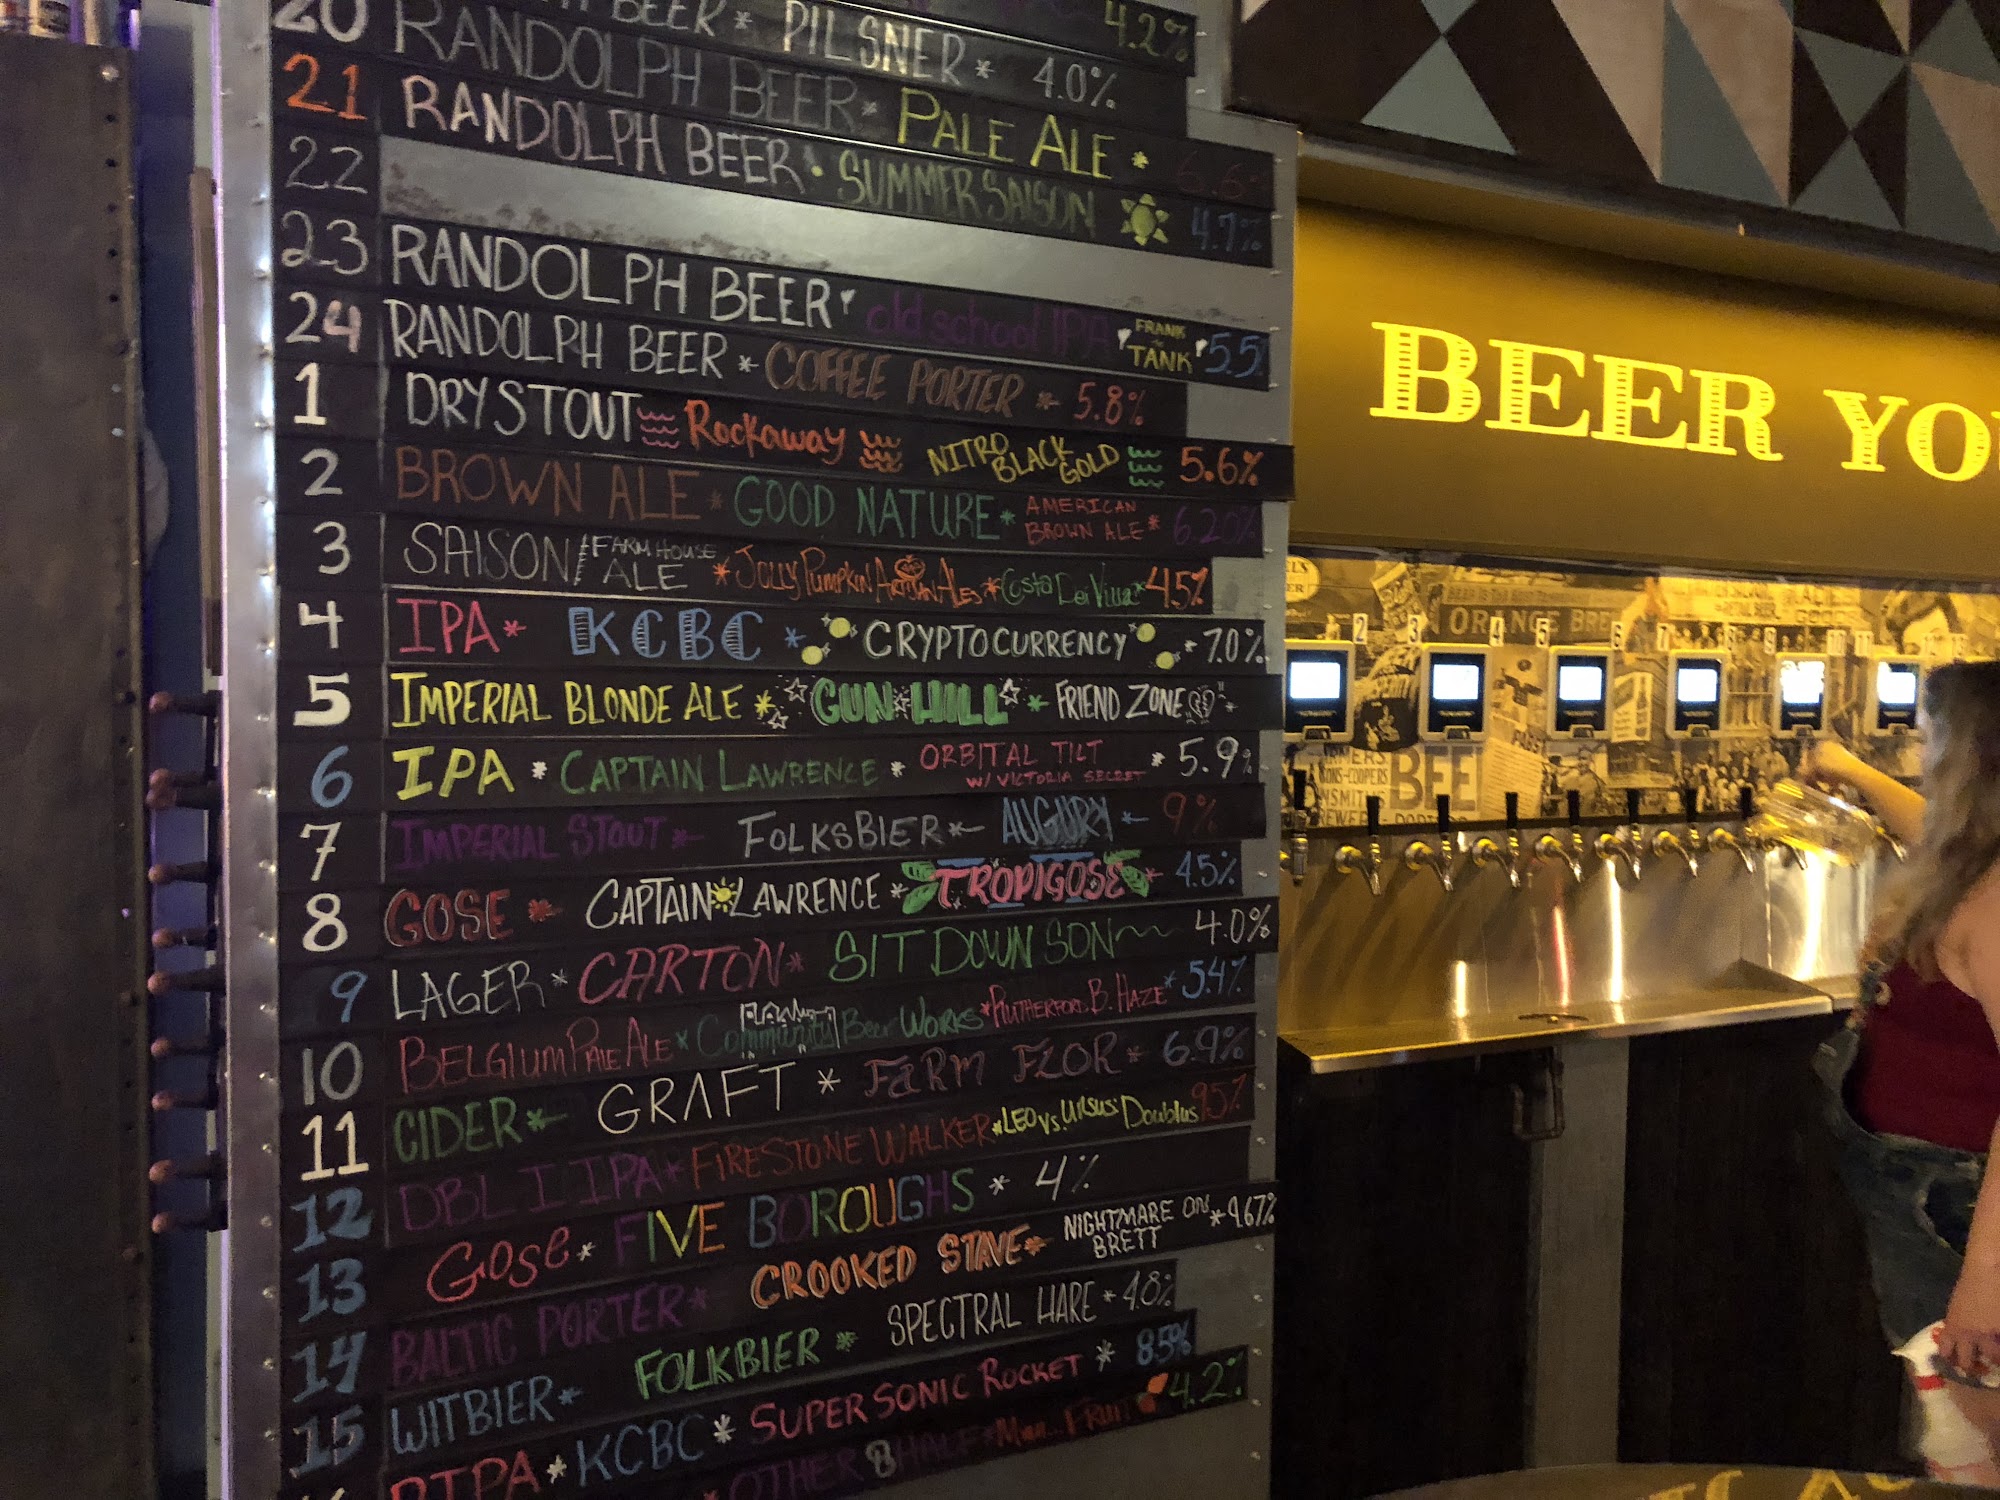 20
BEER * PILSNER * 4.0%
4.2%
21 RANDOLPH BEER * PALE ALE * 6.6
22 RANDOLPH BEER • SUMMER SAISON 4.7%
23 RANDOLPH BEER old school IPA FRANK TANK 5.5%
24 RANDOLPH BEER * COFFEE PORTER * 5.8%
1 DRY STOUT Rockaway NITRO BLACK GOLD 5.6%
2 BROWN ALE * GOOD NATURE * AMERICAN BROWN ALE * 6.20%
3 SAISON / FARM HOUSE ALE * Jolly Pumpkin Artisan Ales * Costa Dei Villa * 4.5%
4 IPA * KCBC * CRYPTOCURRENCY * 7.0%
5 IMPERIAL BLONDE ALE * GUN HILL * FRIEND ZONE
6 IPA * CAPTAIN LAWRENCE * ORBITAL TILT W/ VICTORIA SECRET * 5.9%
7 IMPERIAL STOUT * FOLKSBIER * AUGURY * 9%
8 GOSE * CAPTAIN LAWRENCE * TROPIGOSE * 4.5%
9 LAGER * CARTON * SIT DOWN SON 4.0%
10 BELGIUM PALE ALE * Community Beer Works * RUTHERFORD B. HAZE * 5.4%
11 CIDER * GRAFT * FARM FLOR * 6.9%
12 DBL IPA * FIRESTONE WALKER * LEO vs. URSUS: Doublus 9.5%
13 Gose * FIVE BOROUGHS * 4%
14 BALTIC PORTER * CROOKED STAVE * NIGHTMARE ON BRETT * 9.67%
15 WITBIER * FOLKBIER * SPECTRAL HARE * 4.8%
KCBC * SUPERSONIC ROCKET * 8.5%
OTHER HALF * FRUIT 4.2%
BEER YO
ORANGE BRE
2 3 4 5 6 7 8 9 10 11
BEE